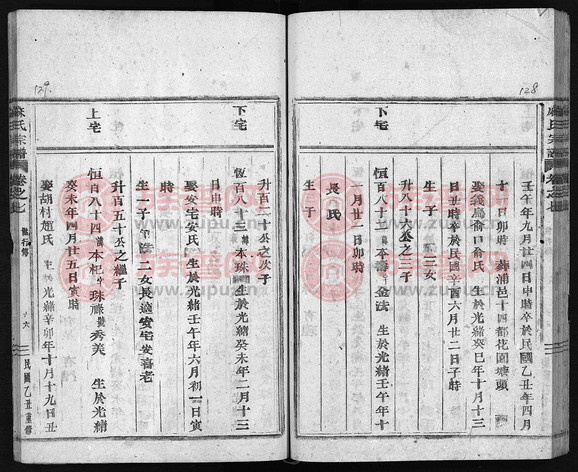 128
麻氏宗譜 卷之七
壬午年九月廿四日申時卒於民國乙丑年四月
十 日卯時 葬浦邑十四都花園塘頭
娶義烏喬口俞氏 生於光緒癸巳年十月十三
日丑時卒於民國辛酉六月廿二日子時
生 子 三女
升八十六公之三子
下宅
恆百八十二 本 金法 生於光緒壬午年十
一月廿一日卯時
長氏
生 子
129
麻氏宗譜 卷之七
恆行傳
十六
民國乙丑重修
升百二十公之次子
下宅
恆百八十三 本珠 生於光緒癸未年二月十三
日申時
娶安宅安氏 生於光緒壬午年六月初一日寅
時
生一子 二女長適安宅安喜老
升百五十公之繼子
上宅
恆百八十四 諱本杞 珠祿 號秀美 生於光緒
癸未年四月廿五日寅時
娶胡村趙氏 生光緒辛卯年十月十九日丑